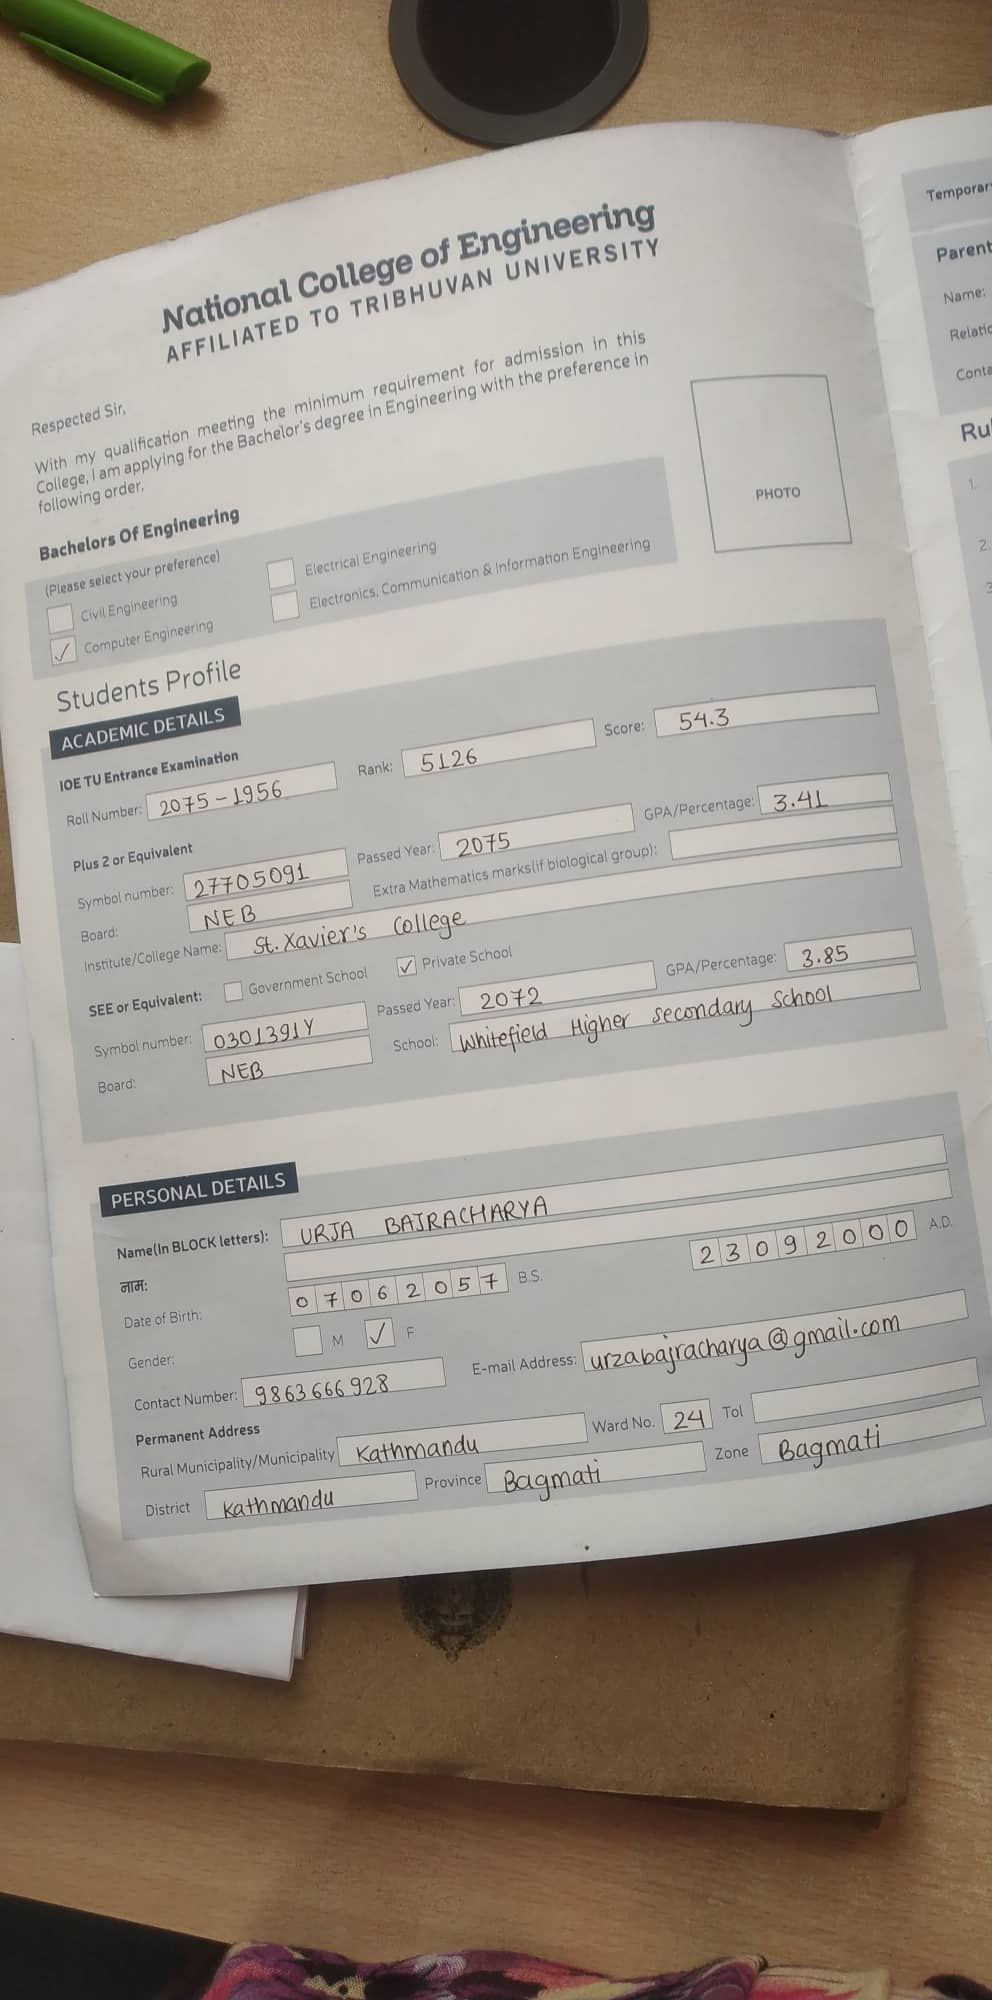 National College of Engineering
AFFILIATED TO TRIBHUVAN UNIVERSITY
Respected Sir,
With my qualification meeting the minimum requirement for admission in this
College, I am applying for the Bachelor's degree in Engineering with the preference in
following order.
PHOTO
Bachelors Of Engineering
(Please select your preference)
Civil Engineering
Electrical Engineering
✓ Computer Engineering
Electronics, Communication & Information Engineering
Students Profile
ACADEMIC DETAILS
IOE TU Entrance Examination
Roll Number: 2075-1956 Rank: 5126 Score: 54.3
Plus 2 or Equivalent
Symbol number: 27705091 Passed Year: 2075 GPA/Percentage: 3.41
Board: NEB Extra Mathematics marks(if biological group):
Institute/College Name: St. Xavier's College
SEE or Equivalent: Government School ✓ Private School
Symbol number: 0301391Y Passed Year: 2072 GPA/Percentage: 3.85
Board: NEB School: Whitefield Higher secondary School
PERSONAL DETAILS
Name(In BLOCK letters): URJA BAJRACHARYA
नाम:
Date of Birth: 07062057 B.S. 23092000 A.D.
Gender: M ✓ F
Contact Number: 9863666928 E-mail Address: urzabajracharya@gmail.com
Permanent Address
Rural Municipality/Municipality Kathmandu Ward No. 24 Tol
District Kathmandu Province Bagmati Zone Bagmati
Parent
Name:
1.
2.